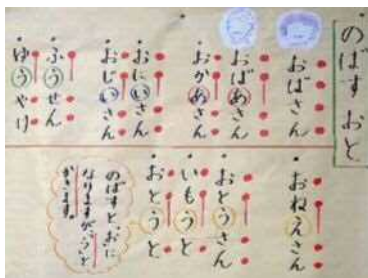 のばす おと
おばさん
おばあさん
おかあさん
おにいさん
おじいさん
ふうせん
ゆうやけ
おねえさん
おとうさん
いもうと
おとうと
のばすと、おに
なりますが、「う」と
かきます。